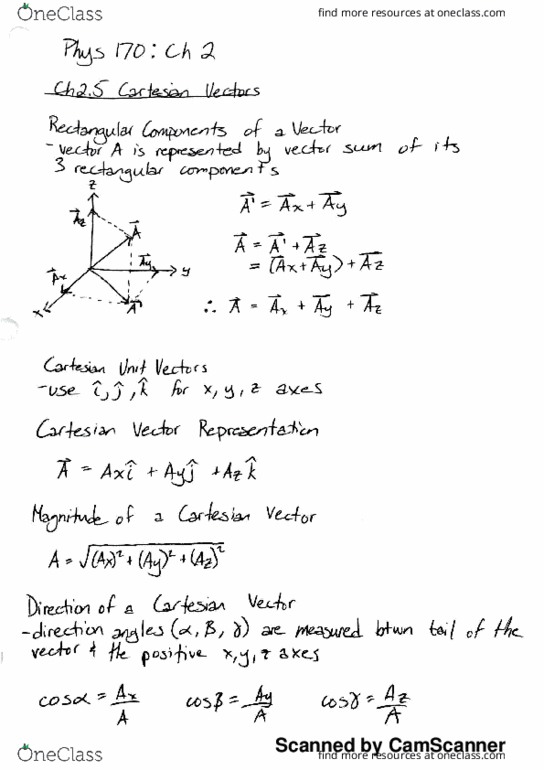 OneClass
find more resources at oneclass.com
Phys 170: Ch 2
Ch2.5 Cartesian Vectors
Rectangular Components of a Vector
- vector A is represented by vector sum of its
3 rectangular components
z
A⃗z
A⃗
A⃗' = A⃗x + A⃗y
A⃗ = A⃗' + A⃗z
= (A⃗x + A⃗y) + A⃗z
A⃗y
y
A⃗x
x
A⃗'
∴ A⃗ = A⃗x + A⃗y + A⃗z
Cartesian Unit Vectors
- use î, ĵ, k̂ for x, y, z axes
Cartesian Vector Representation
A⃗ = Axî + Ayĵ + Azk̂
Magnitude of a Cartesian Vector
A = √(Ax)² + (Ay)² + (Az)²
Direction of a Cartesian Vector
- direction angles (α, β, γ) are measured btwn tail of the
vector & the positive x, y, z axes
cosα = Ax/A cosβ = Ay/A cosγ = Az/A
Scanned by CamScanner
OneClass
find more resources at oneclass.com